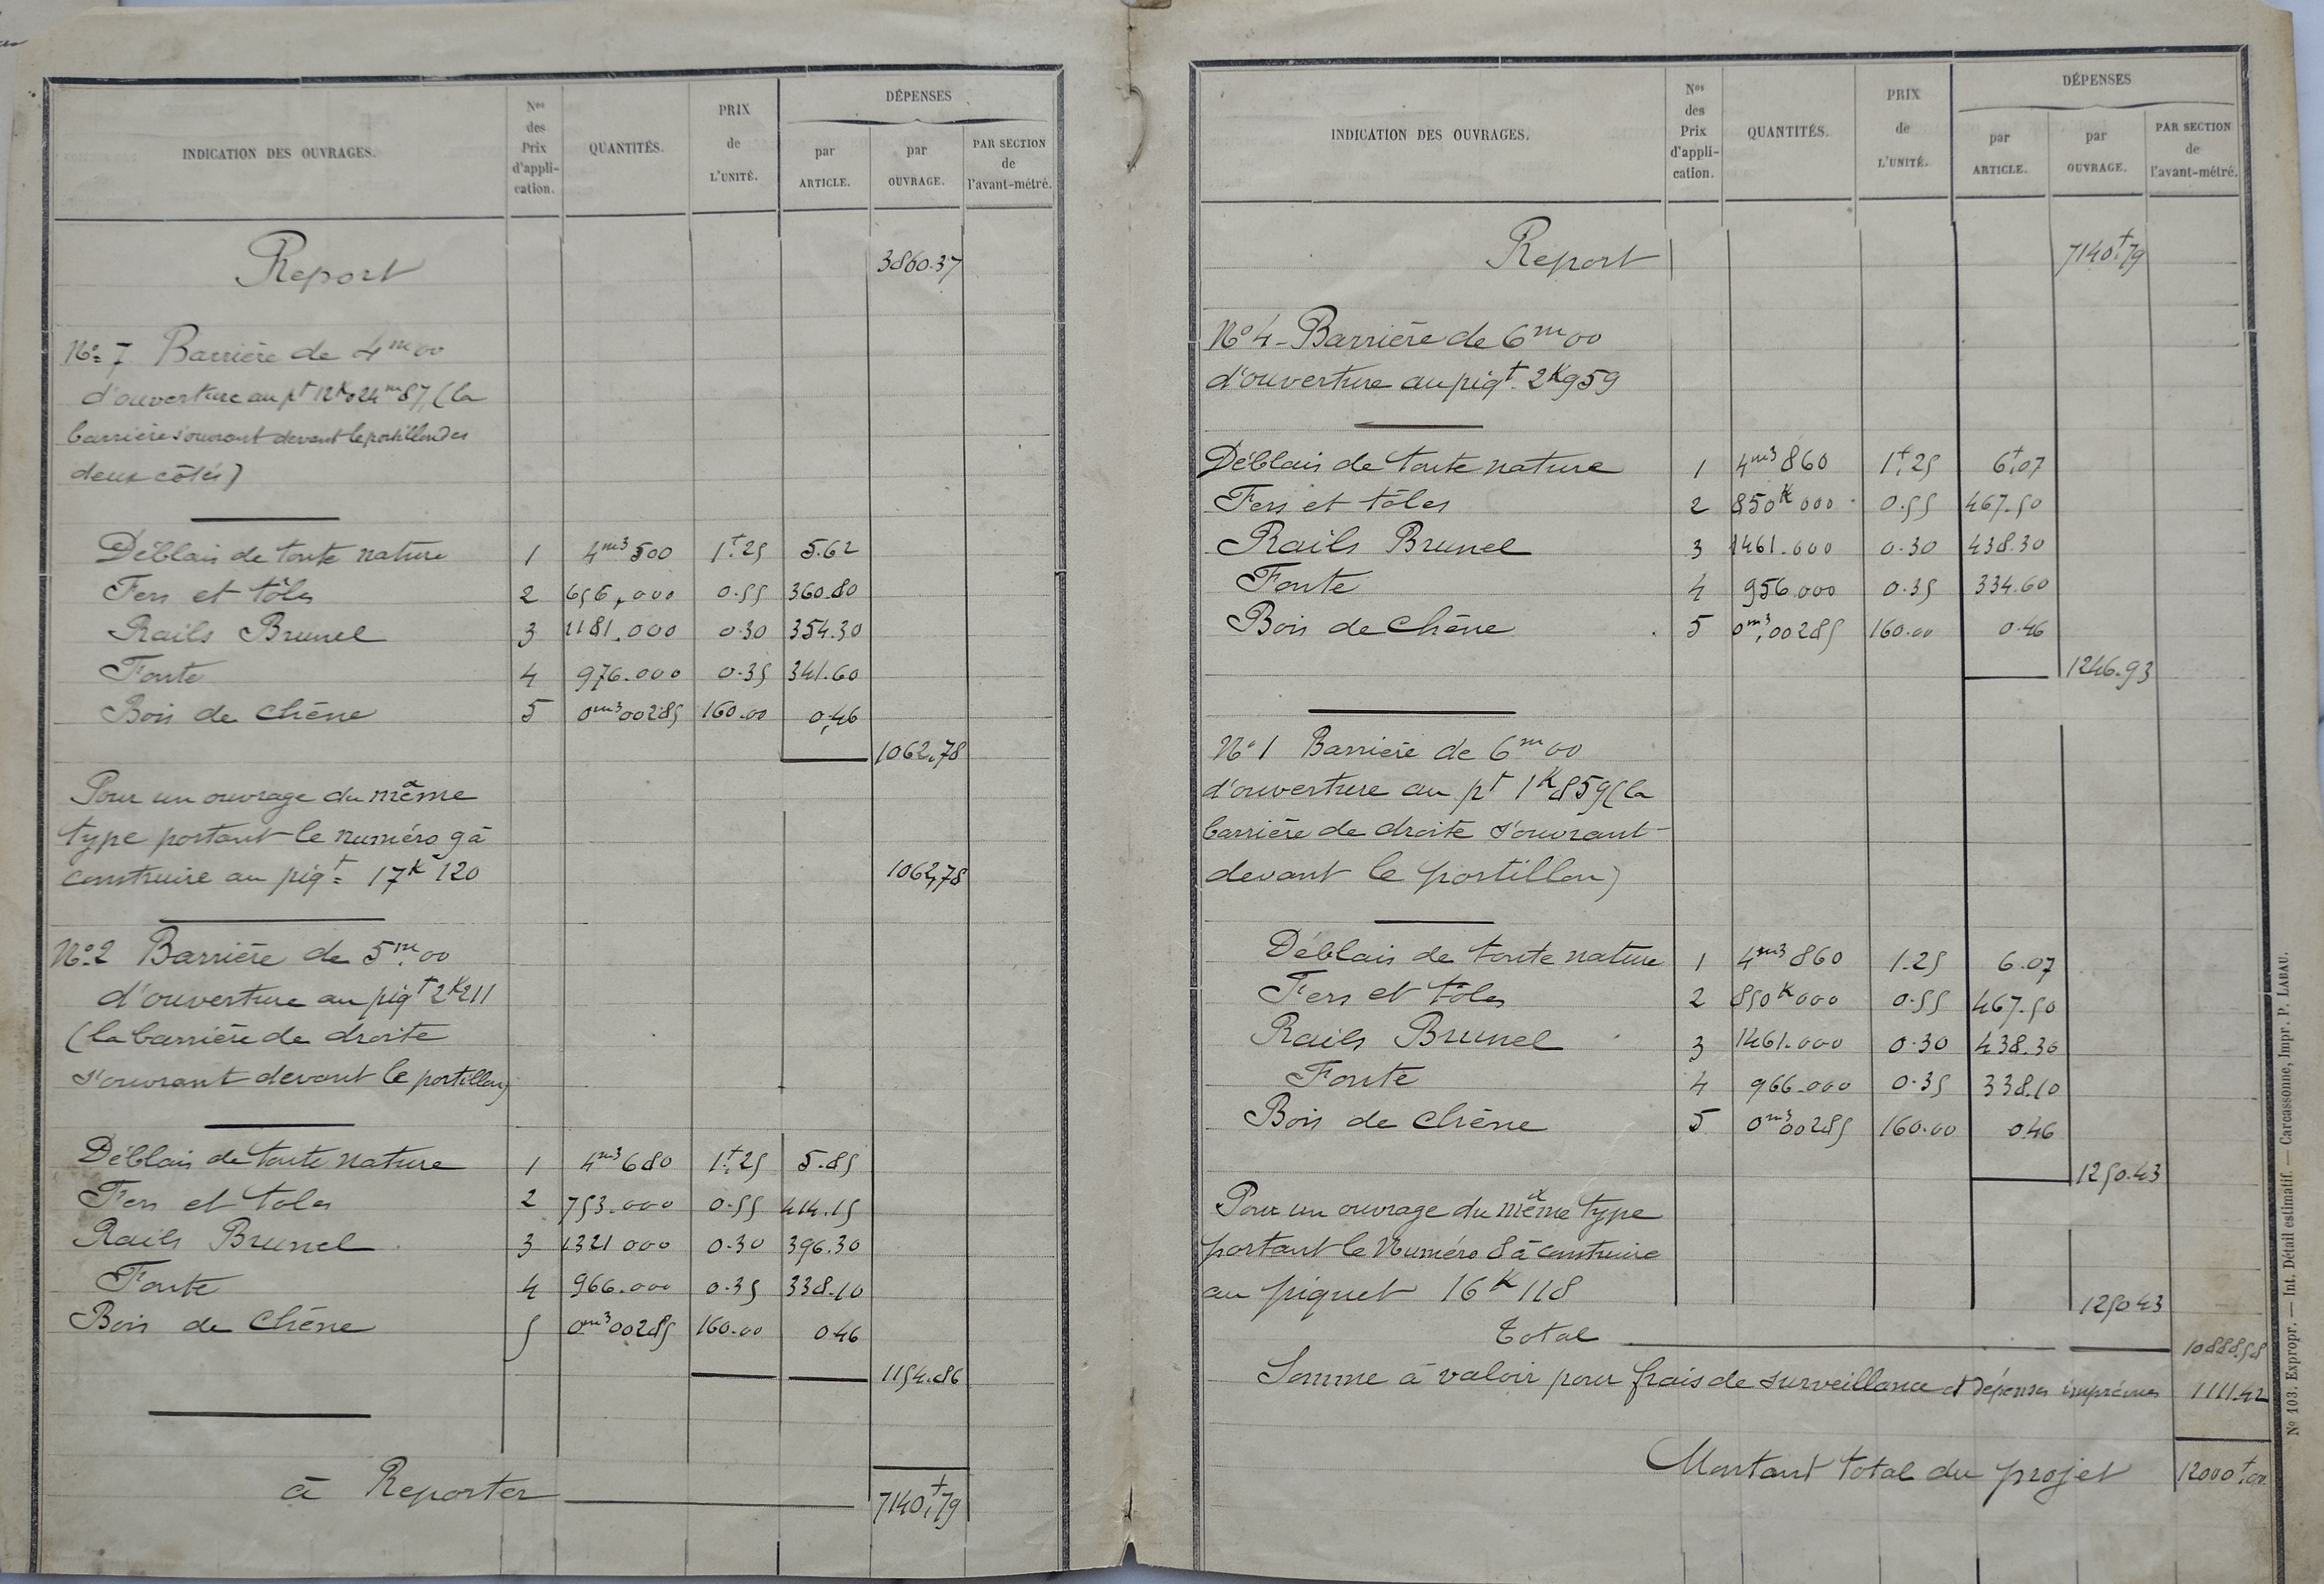 INDICATION DES OUVRAGES.
Nos des Prix d'appli-cation.
QUANTITÉS.
PRIX de L'UNITÉ.
DÉPENSES
par ARTICLE.
par OUVRAGE.
PAR SECTION de l'avant-métré.
Report 3860.37
No 7 Barrière de 4m00
d'ouverture au pt 12k024m87, (la
barrière s'ouvrant devant le portillon des
deux côtés)
Déblais de toute nature 1 4m3500 1f.25 5.62
Fers et tôles 2 656,000 0.55 360.80
Rails Brunel 3 1181.000 0.30 354.30
Fonte 4 976.000 0.35 341.60
Bois de chêne 5 0m300285 160.00 0,46
1062,78
Pour un ouvrage du même
type portant le numéro 9 à
construire au piqt 17k120
1062,78
No 2 Barrière de 5m.00
d'ouverture au piqt 2k211
(la barrière de droite
s'ouvrant devant le portillon)
Déblais de toute nature 1 4m3680 1f.25 5.85
Fers et toles 2 753.000 0.55 414.15
Rails Brunel 3 1321 000 0.30 396.30
Fonte 4 966.000 0.35 338.10
Bois de Chêne 5 0m300285 160.00 0 46
1154.86
à Reporter 7140f.79
INDICATION DES OUVRAGES.
Nos des Prix d'appli-cation.
QUANTITÉS.
PRIX de L'UNITÉ.
DÉPENSES
par ARTICLE.
par OUVRAGE.
PAR SECTION de l'avant-métré.
Report 7140f.79
No 4 - Barrière de 6m00
d'ouverture au piqt. 2k959
Déblais de toute nature 1 4m3860 1f.25 6f.07
Fers et tôles 2 850k000 0.55 467.50
Rails Brunel 3 1461.000 0.30 438.30
Fonte 4 956.000 0.35 334.60
Bois de Chêne 5 0m3,00285 160.00 0.46
1246.93
No 1 Barrière de 6m00
d'ouverture au pt 1k859 (la
barrière de droite s'ouvrant
devant le portillon)
Déblais de toute nature 1 4m3860 1.25 6.07
Fers et tôles 2 850k000 0.55 467.50
Rails Brunel 3 1461.000 0.30 438.30
Fonte 4 966.000 0.35 338.10
Bois de chêne 5 0m300285 160.00 0 46
1250.43
Pour un ouvrage du même type
portant le Numéro 8 à construire
au piquet 16k118
1250 43
Total 10888.58
Somme à valoir pour frais de surveillance et dépenses imprévues 1111.42
Montant total du projet 12000f.00
No 103. Expropr. — Int. Détail estimatif. — Carcassonne, Impr. P. LABAU.